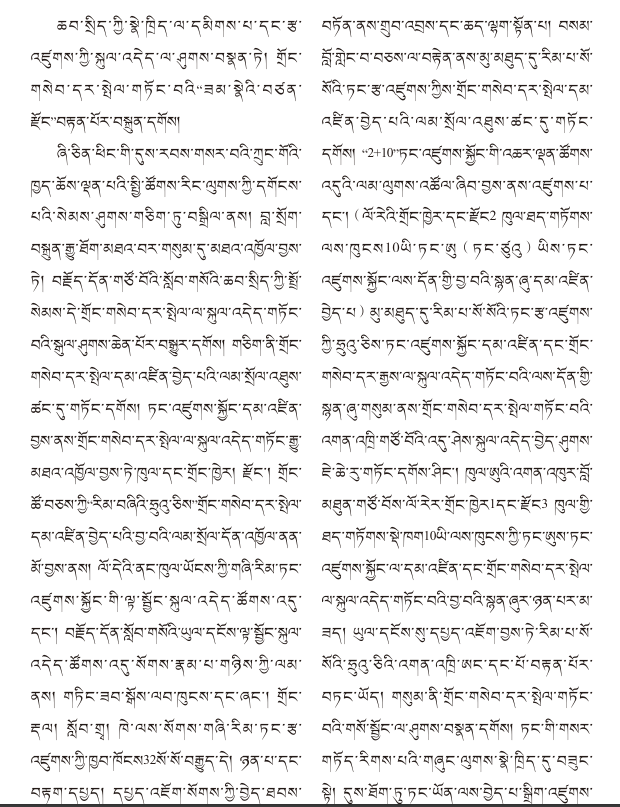 ཆབ་སྲིད་ཀྱི་སྣེ་ཁྲིད་ལ་དམིགས་པ་དང་རྩ་
འཛུགས་ཀྱི་སྐུལ་འདེད་ལ་ཤུགས་བསྣན་ཏེ། གྲོང་
གསེབ་དར་སྤེལ་གཏོང་བའི་“ཟམ་སྣེའི་བཙན་
རྫོང་”བརྟན་པོར་བསྐྲུན་དགོས།
ཞི་ཅིན་ཕིང་གི་དུས་རབས་གསར་བའི་ཀྲུང་གོའི་
ཁྱད་ཆོས་ལྡན་པའི་སྤྱི་ཚོགས་རིང་ལུགས་ཀྱི་དགོངས་
པའི་སེམས་ཤུགས་གཅིག་ཏུ་བསྒྲིལ་ནས། བླ་སྲོག་
བསྐྲུན་རྒྱུ་ཐོག་མཐའ་བར་གསུམ་དུ་མཐའ་འཁྱོལ་བྱས་
ཏེ། བརྗོད་དོན་གཙོ་བོའི་སློབ་གསོའི་ཆབ་སྲིད་ཀྱི་སྤྲོ་
སེམས་དེ་གྲོང་གསེབ་དར་སྤེལ་ལ་སྐུལ་འདེད་གཏོང་
བའི་སྒུལ་ཤུགས་ཆེན་པོར་བསྒྱུར་དགོས། གཅིག་ནི་གྲོང་
གསེབ་དར་སྤེལ་དམ་འཛིན་བྱེད་པའི་ལམ་སྲོལ་འཐུས་
ཚང་དུ་གཏོང་དགོས། ཏང་འཛུགས་སྐྱོང་དམ་འཛིན་
བྱས་ནས་གྲོང་གསེབ་དར་སྤེལ་ལ་སྐུལ་འདེད་གཏོང་རྒྱུ་
མཐའ་འཁྱོལ་བྱས་ཏེ་ཁུལ་དང་གྲོང་ཁྱེར། རྫོང་། གྲོང་
ཚོ་བཅས་ཀྱི་“རིམ་བཞིའི་ཧྲུའུ་ཅིས་”གྲོང་གསེབ་དར་སྤེལ་
དམ་འཛིན་བྱེད་པའི་བྱ་བའི་ལམ་སྲོལ་དོན་འཁྱོལ་ནན་
མོ་བྱས་ནས། ལོ་དེའི་ནང་ཁུལ་ཡོངས་ཀྱི་གཞི་རིམ་ཏང་
འཛུགས་སྐྱོང་གི་ལྟ་སྤྱོང་སྐུལ་འདེད་ཚོགས་འདུ་
དང་། བརྗོད་དོན་སློབ་གསོའི་ཡུལ་དངོས་ལྟ་སྤྱོང་སྐུལ་
འདེད་ཚོགས་འདུ་སོགས་རྣམ་པ་གཉིས་ཀྱི་ལམ་
ནས། གཏིང་ཟབ་སྒོས་ལབ་ཁུངས་དང་ཞང་། གྲོང་
རྡལ། སློབ་གྲྭ། ཁེ་ལས་སོགས་གཞི་རིམ་ཏང་རྩ་
འཛུགས་ཀྱི་ཁྱབ་ཁོངས32སོ་སོ་བརྒྱུད་དེ། ཉན་པ་དང་
བརྟག་དཔྱད། དཔྱད་འཇོག་སོགས་ཀྱི་བྱེད་ཐབས་
བཏོན་ནས་གྲུབ་འབྲས་དང་ཆད་ལྷག་སྟོན་པ། བསམ་
བློ་གླེང་བ་བཅས་ལ་བརྟེན་ནས་མུ་མཐུད་དུ་རིམ་པ་སོ་
སོའི་ཏང་རྩ་འཛུགས་ཀྱིས་གྲོང་གསེབ་དར་སྤེལ་དམ་
འཛིན་བྱེད་པའི་ལམ་སྲོལ་འཐུས་ཚང་དུ་གཏོང་
དགོས། “2+10”ཏང་འཛུགས་སྐྱོང་གི་འཆར་ལྡན་ཚོགས་
འདུའི་ལམ་ལུགས་འཚོལ་ཞིབ་བྱས་ནས་འཛུགས་པ་
དང་། (ལོ་རེའི་གྲོང་ཁྱེར་དང་རྫོང2 ཁུལ་ཐད་གཏོགས་
ལས་ཁུངས10ཡི་ཏང་ཨུ (ཏང་ཙུའུ) ཡིས་ཏང་
འཛུགས་སྐྱོང་ལས་དོན་གྱི་བྱ་བའི་སྙན་ཞུ་དམ་འཛིན་
བྱེད་པ) མུ་མཐུད་དུ་རིམ་པ་སོ་སོའི་ཏང་རྩ་འཛུགས་
ཀྱི་ཧྲུའུ་ཅིས་ཏང་འཛུགས་སྐྱོང་དམ་འཛིན་དང་གྲོང་
གསེབ་དར་རྒྱས་ལ་སྐུལ་འདེད་གཏོང་བའི་ལས་དོན་གྱི་
སྙན་ཞུ་གསུམ་ནས་གྲོང་གསེབ་དར་སྤེལ་གཏོང་བའི་
འགན་འཁྲི་གཙོ་བོའི་འདུ་ཤེས་སྐུལ་འདེད་བྱེད་ཤུགས་
ཇེ་ཆེ་རུ་གཏོང་དགོས་ཤིང་། ཁུལ་ཨུའི་འགན་འཁུར་བློ་
མཐུན་གཙོ་བོས་ལོ་རེར་གྲོང་ཁྱེར1དང་རྫོང3 ཁུལ་གྱི་
ཐད་གཏོགས་སྡེ་ཁག10ཡི་ལས་ཁུངས་ཀྱི་ཏང་ཨུས་ཏང་
འཛུགས་སྐྱོང་ལ་དམ་འཛིན་དང་གྲོང་གསེབ་དར་སྤེལ་
ལ་སྐུལ་འདེད་གཏོང་བའི་བྱ་བའི་སྙན་ཞུར་ཉན་པར་མ་
ཟད། ཡུལ་དངོས་སུ་དཔྱད་འཇོག་བྱས་ཏེ་རིམ་པ་སོ་
སོའི་ཧྲུའུ་ཅིའི་འགན་འཁྲི་ཨང་དང་པོ་བརྟན་པོར་
བཏང་ཡོད། གསུམ་ནི་གྲོང་གསེབ་དར་སྤེལ་གཏོང་
བའི་གསོ་སྤྱོང་ལ་ཤུགས་བསྣན་དགོས། ཏང་གི་གསར་
གཏོད་རིགས་པའི་གཞུང་ལུགས་སྣེ་ཁྲིད་དུ་བཟུང་
སྟེ། དུས་ཐོག་ཏུ་ཏང་ཡོན་ལས་བྱེད་པ་སྒྲིག་འཛུགས་